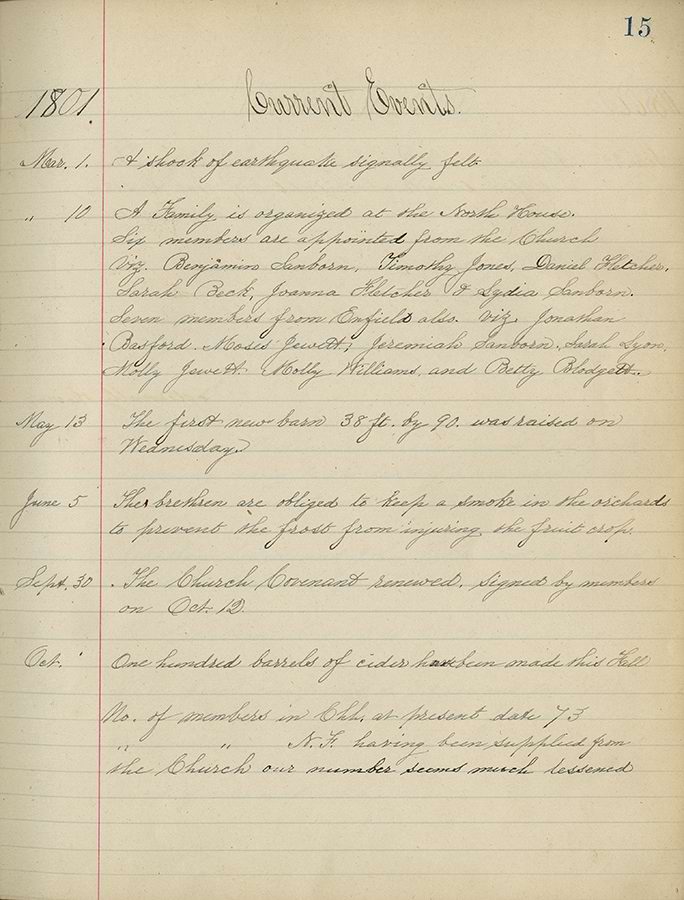 15
1801. Current Events.
Mar. 1. A shock of earthquake signally felt.
" 10 A Family is organized at the North House.
Six members are appointed from the Church
Viz. Benjamin Sanborn, Timothy Jones, Daniel Fletcher,
Sarah Beck, Joanna Fletcher & Lydia Sanborn.
Seven members from Enfield also. Viz. Jonathan
Basford. Moses Jewett, Jeremiah Sanborn, Sarah Lyon,
Molly Jewett. Molly Williams, and Betty Blodgett.
May 13 The first new barn 38 ft. by 90. was raised on
Wednesday.
June 5 The brethren are obliged to keep a smoke in the orchards
to prevent the frost from injuring the fruit crop.
Sept. 30 The Church Covenant renewed, signed by members
on Oct. 12.
Oct. One hundred barrels of cider have been made this Fall
No. of members in Chh. at present date 73
" " N.F. having been supplied from
the Church our number seems much lessened